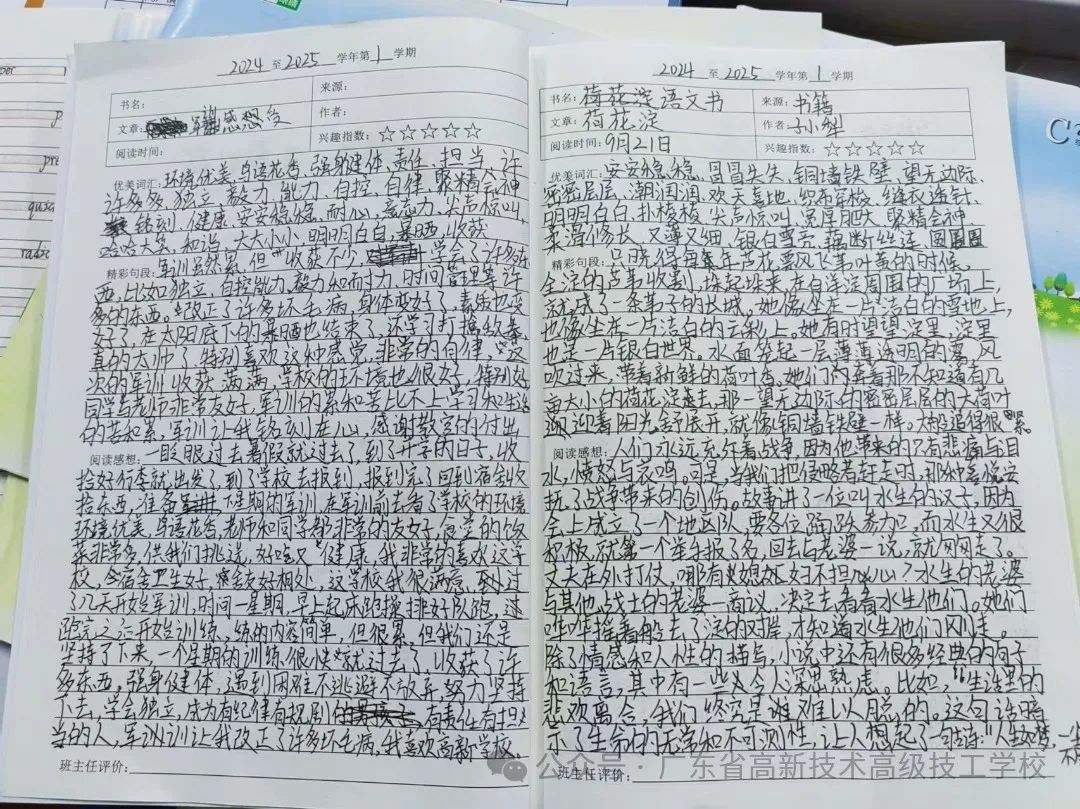 2024 至 2025 学年第 1 学期
书名：
来源：
文章： 军训感想
作者：
阅读时间：
兴趣指数：☆☆☆☆☆
优美词汇：环境优美、鸟语花香、强身健体、责任、担当、许
许多多、独立、毅力、能力、自控、自律、聚精会神
铭刻、健康、安安稳稳、耐心、意志力、尖声惊叫、
哈哈大笑、和谐、大大小小、明明白白、暴晒、收获
精彩句段：军训虽然累，但收获不少，学会了许多东
西，比如独立，自控能力、毅力和耐力，时间管理等许
多的东西。改正了许多坏毛病，身体变好了，素质也变
好了，在太阳底下的暴晒也结束了，还学习打擒敌拳
真的太帅了，特别喜欢这种感觉，非常的自律，这
次的军训收获满满，学校的环境也很好，特别好
同学与老师非常友好，军训的累和苦比不上学习和生活
的苦和累，军训让我铭刻在心，感谢教官的付出
阅读感想：一眨眼过去暑假就过去了，到了开学的日子，收
拾好行李就出发了，到了学校去报到，报到完了回到宿舍收
拾东西，准备下星期的军训，在军训前去看了学校的环境
环境优美，鸟语花香，老师和同学都非常的友好，食堂的饭
菜非常多，供我们挑选，好吃又健康，我非常的喜欢这学
校，令宿舍卫生好，友好相处，这学校我很满意，到过
了几天开始军训，时间一星期，早上起床跑操排好队跑，进
跑完之后开始训练，练的内容简单，但很累，但我们还是
坚持了下来，一个星期的训练很快就过去了，收获了许
多东西。强身健体，遇到困难不逃避不放弃，努力坚持
下去，学会独立，成为有纪律有规则有责任有担
当的人，军训训让我改正了许多坏毛病，我喜欢高新学校。
班主任评价：
2024 至 2025 学年第 1 学期
书名：荷花淀语文书
来源：书籍
文章：荷花淀
作者：孙犁
阅读时间：9月21日
兴趣指数：☆☆☆☆☆
优美词汇：安安稳稳、冒冒失失、铜墙铁壁、望无边际、
密密层层、潮润润、欢天喜地、织布穿梭、缝衣透针、
明明白白、扑棱棱、尖声惊叫、宽厚肥大、聚精会神
柔滑修长、又薄又细、银白雪亮、藕断丝连、团团围
精彩句段：只晓得每年芦花飘风飞苇叶黄的时候。
全淀的芦苇收割，垛起垛来，在白洋淀周围的广场上，
就成了一条苇子的长城。她像坐在一片洁白的雪地上，
也像坐在一片洁白的云彩上。她有时望望淀里，淀里
也是一片银白世界。水面笼起一层薄薄透明的雾，风
吹过来，带着新鲜的荷叶香。她们内奔着那不知道有几
亩大小的荷花淀去，那一望无边际的密密层层的大荷叶
迎迎着阳光舒展开，就像铜墙铁壁一样。大船追得很紧
阅读感想：人们永远充斥着战争，因为他带来的只有悲痛与泪
水，愤怒与哀鸣。可是，当我们把侵略者赶走时，那种喜悦安
抚了战争带来的创伤。故事讲了一位叫水生的汉子，因为
会上成立了一个地区队，要各位踊跃参加，而水生又很
积极，就第一个举手报了名，回去与老婆一说，就匆匆走了。
丈夫在外打仗，哪有媳妇不担心？水生的老婆
与其他战士的老婆一商议，决定去看看水生他们。她们
哗哗摇着船去了淀的对岸，才知道水生他们刚走。
除了情感和人性的描写，小说中还有很多经典的句子
和语言，其中有一些令人深思熟虑。比如，“生活里的
悲欢离合，我们终究是难以人脱的。这句话暗
示了生命的无常和不可测性，让人想起了一句古诗：“人生如梦，
班主任评价：
公众号 · 广东省高新技术高级技工学校